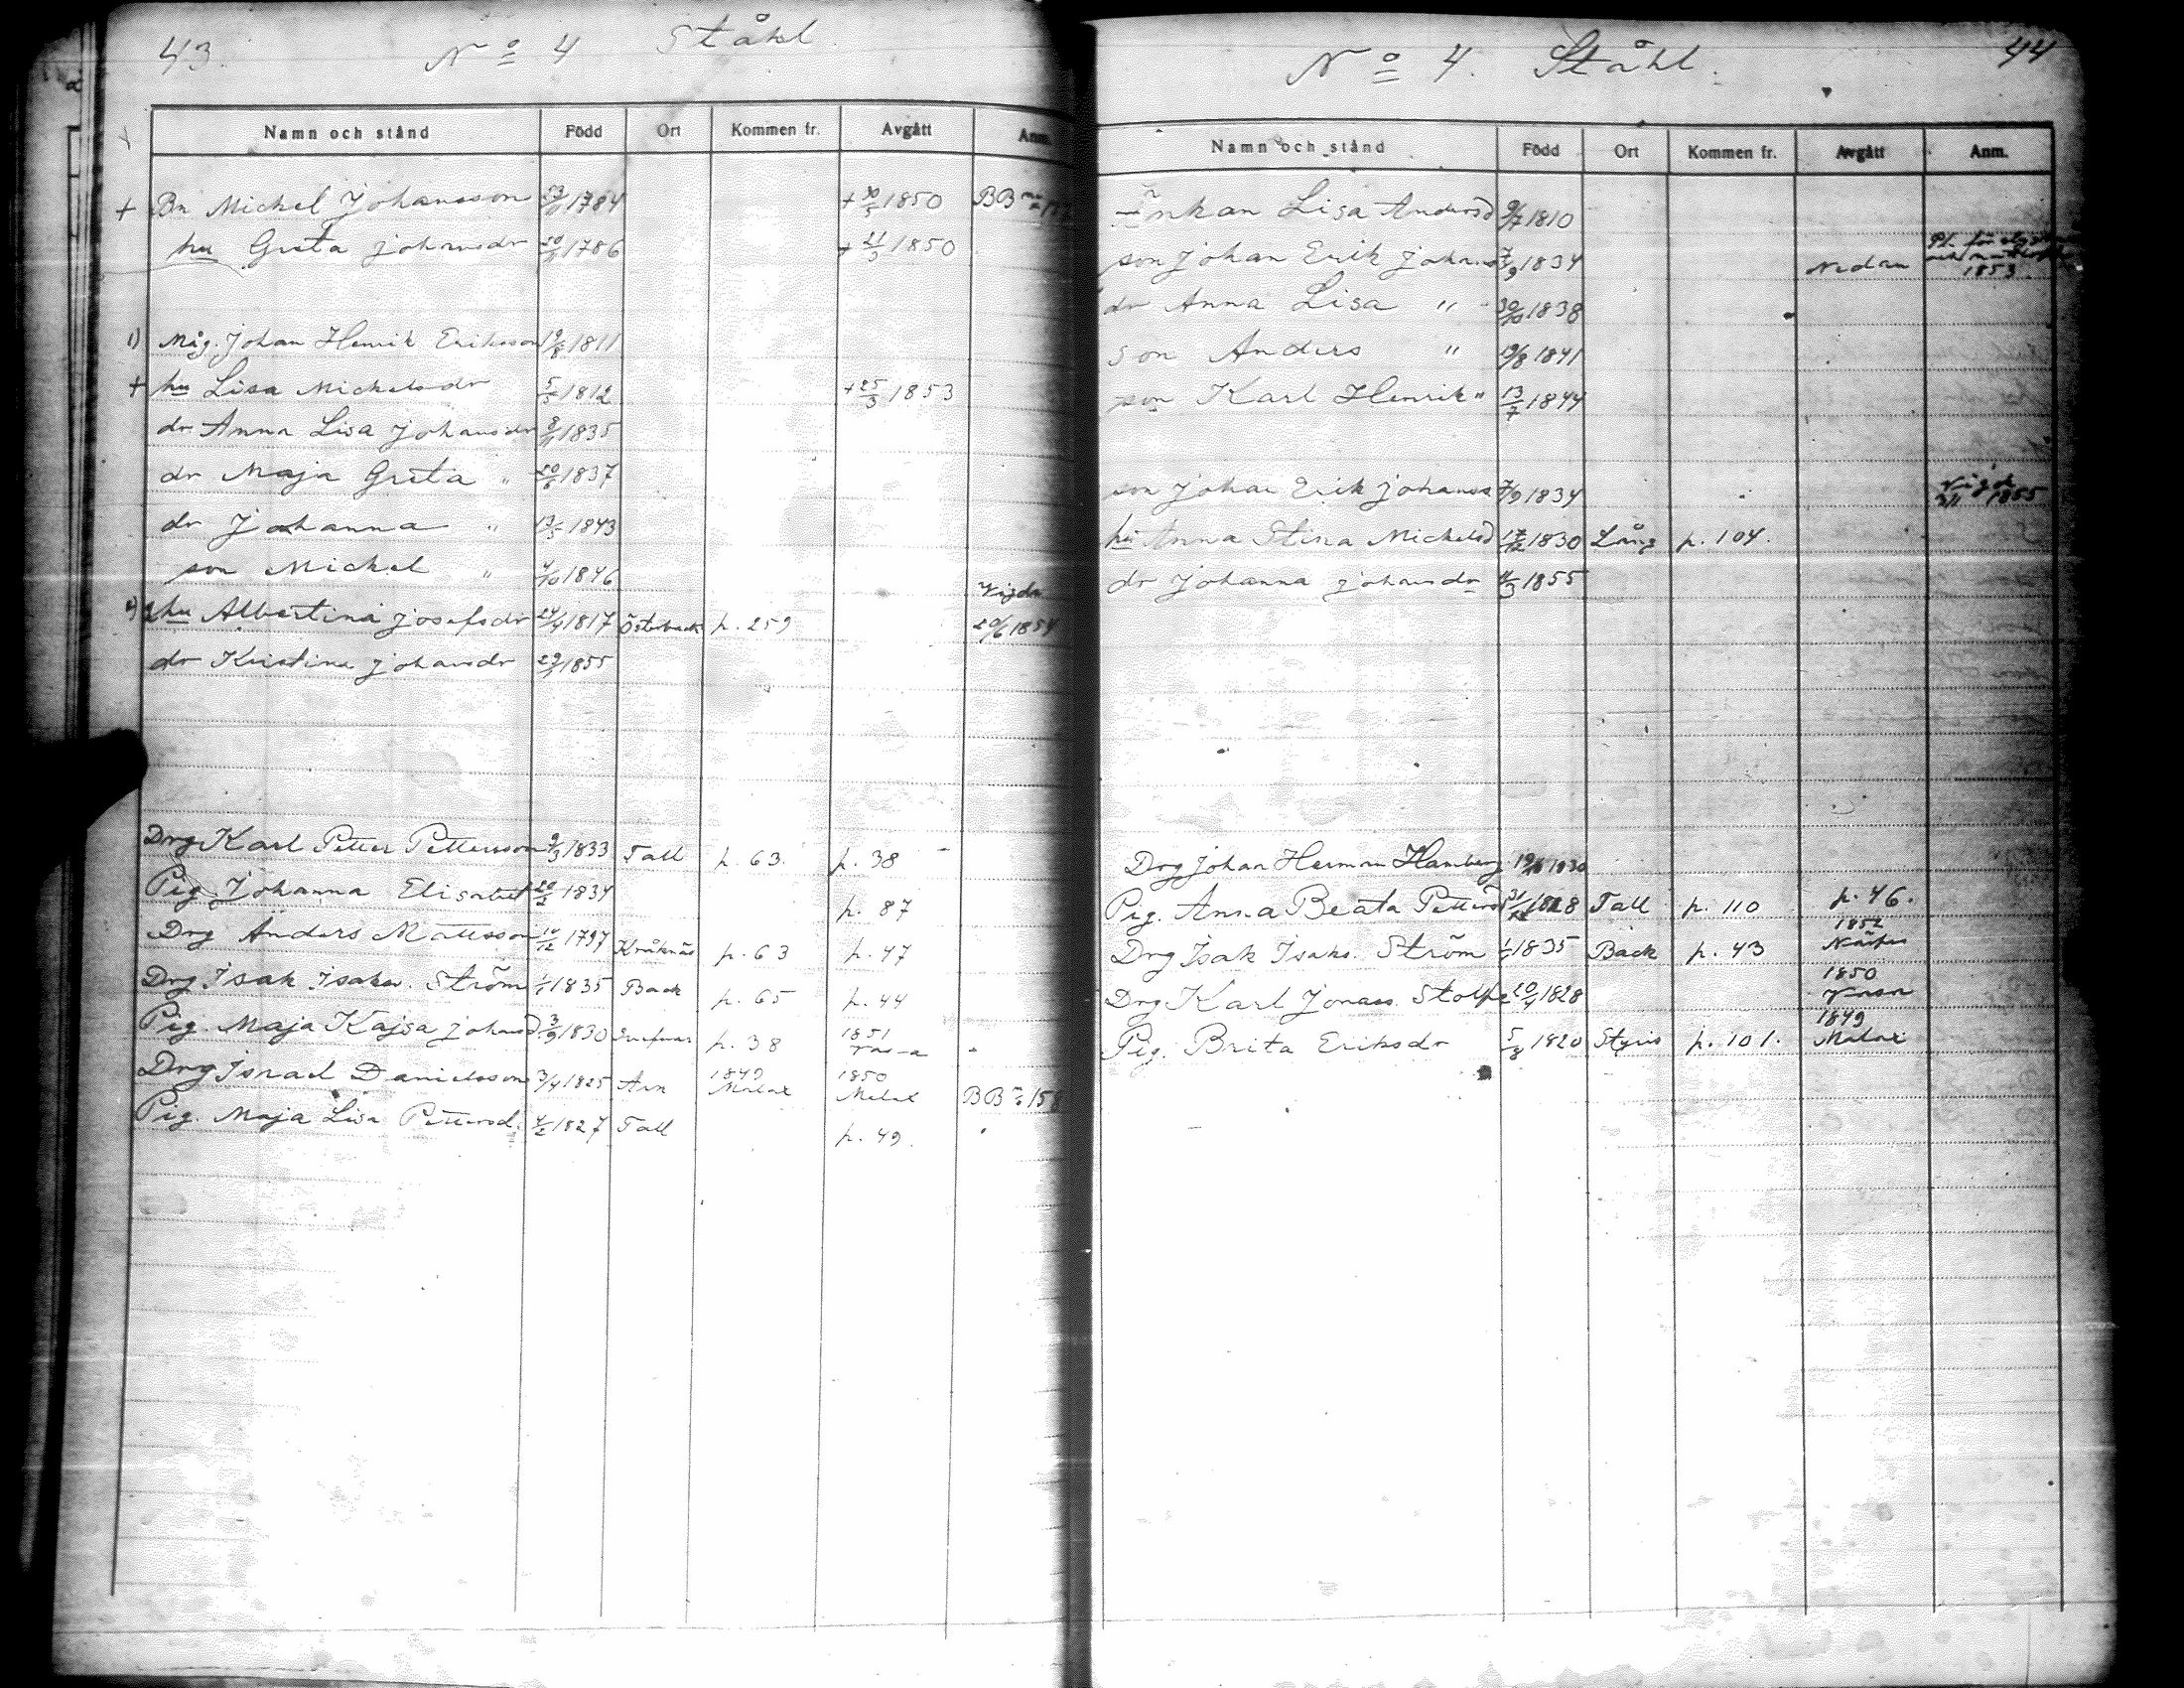 43. No 4 Ståhl.
Namn och stånd Född Ort Kommen fr. Avgått Anm.
+ Bn Michel Johansson 1784 + 30/5 1850 BB
hu Greta Johansdr 1786 + 21/3 1850
1) Måg. Johan Henrik Eriksson 1811
+ hu Lisa Mickelsdr 5/5 1812 + 25/3 1853
dr Anna Lisa Johansdr 1835
dr Maja Greta " 20/6 1837
dr Johanna " 13/5 1843
son Michel " 4/10 1846
2) 2 hu Albertina Josefsdr 24/4 1817 Österback p. 259 Vigda 20/6 1854
dr Kristina Johansdr 1855
Drg Karl Petter Pettersson 9/3 1833 Tall p. 63. p. 38
Pig. Johanna Elisabet 1834 p. 87
Drg Anders Mattsson 1797 Kråknäs p. 63 p. 47
Drg Isak Isaks. Ström 1/1 1835 Back p. 65 p. 44
Pig. Maja Kajsa Johansd. 3/9 1830 p. 38 1851
Drg Israel Danielsson 3/4 1825 1849 Malax 1850 Malax BB 158
Pig. Maja Lisa Pettersd. 1827 Tall p. 49.
No 4. Ståhl. 44
Namn och stånd Född Ort Kommen fr. Avgått Anm.
Änkan Lisa Andersd 9/7 1810
son Johan Erik Johans 7/9 1834 Nedan 1853
dr Anna Lisa " 30/10 1838
son Anders " 19/8 1841
son Karl Henrik " 13/7 1844
son Johan Erik Johanss 7/9 1834 Vigd 1855
hu Anna Stina Michelsd 17/12 1830 Lång p. 104.
dr Johanna Johansdr 1855
Drg Johan Herman Hamberg 1830
Pig. Anna Beata Pettersd 1828 Tall p. 110 p. 46.
Drg Isak Isaks. Ström 1/1 1835 Back p. 43 1852 Närpes
Drg Karl Jonass. Stolpe 20/4 1828 1850 Vasa
Pig. Brita Eriksdr 5/8 1820 Styris p. 101. 1849 Malax